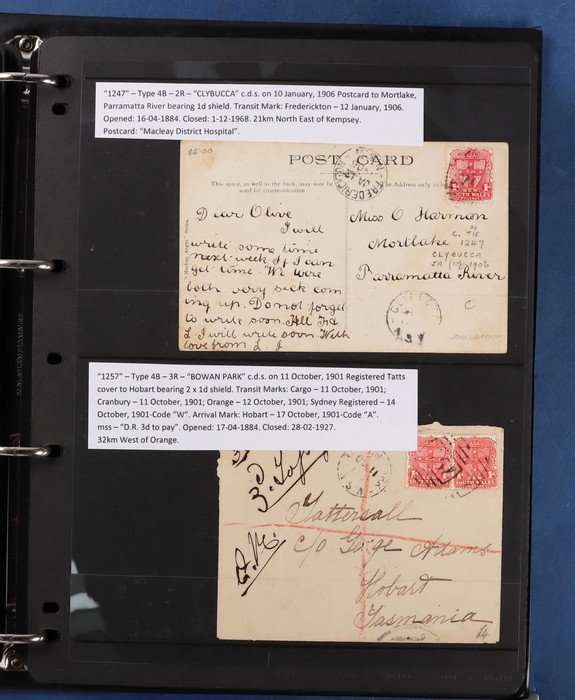 "1247" – Type 4B – 2R – "CLYBUCCA" c.d.s. on 10 January, 1906 Postcard to Mortlake,
Parramatta River bearing 1d shield. Transit Mark: Frederickton – 12 January, 1906.
Opened: 16-04-1884. Closed: 1-12-1968. 21km North East of Kempsey.
Postcard: "Macleay District Hospital".
POST CARD
This space, as well as the back, may now be
used for communication
The Address only to be
Dear Olive
I will
write some time
next week If I can
get time. We were
both very sick com
ing up. Do not forget
to write soon.
I will write soon With
love from L. J
Miss O Harman
Mortlake
Parramatta River
1247
CLYBUCCA
JA (10) 1906
C
"1257" – Type 4B – 3R – "BOWAN PARK" c.d.s. on 11 October, 1901 Registered Tatts
cover to Hobart bearing 2 x 1d shield. Transit Marks: Cargo – 11 October, 1901;
Cranbury – 11 October, 1901; Orange – 12 October, 1901; Sydney Registered – 14
October, 1901-Code "W". Arrival Mark: Hobart – 17 October, 1901-Code "A".
mss – "D.R. 3d to pay". Opened: 17-04-1884. Closed: 28-02-1927.
32km West of Orange.
Tattersall
c/o George Adams
Hobart
Tasmania